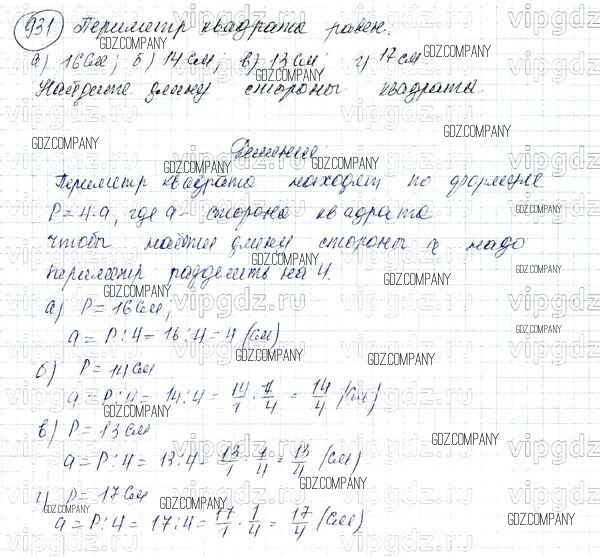 931 Периметр квадрата равен:
а) 16см; б) 14см; в) 13см; г) 17см
Найдите длину стороны квадрата.
Решение:
Периметр квадрата находят по формуле
P=4·a, где a - сторона квадрата
чтобы найти длину стороны надо
периметр разделить на 4.
а) P=16см,
a=P:4=16:4=4 (см)
б) P=14см
a=P:4=14:4=14/1·1/4=14/4 (см)
в) P=13см
a=P:4=13:4=13/1·1/4=13/4 (см)
г) P=17см
a=P:4=17:4=17/1·1/4=17/4 (см)
GDZ.COMPANY
vipgdz.ru